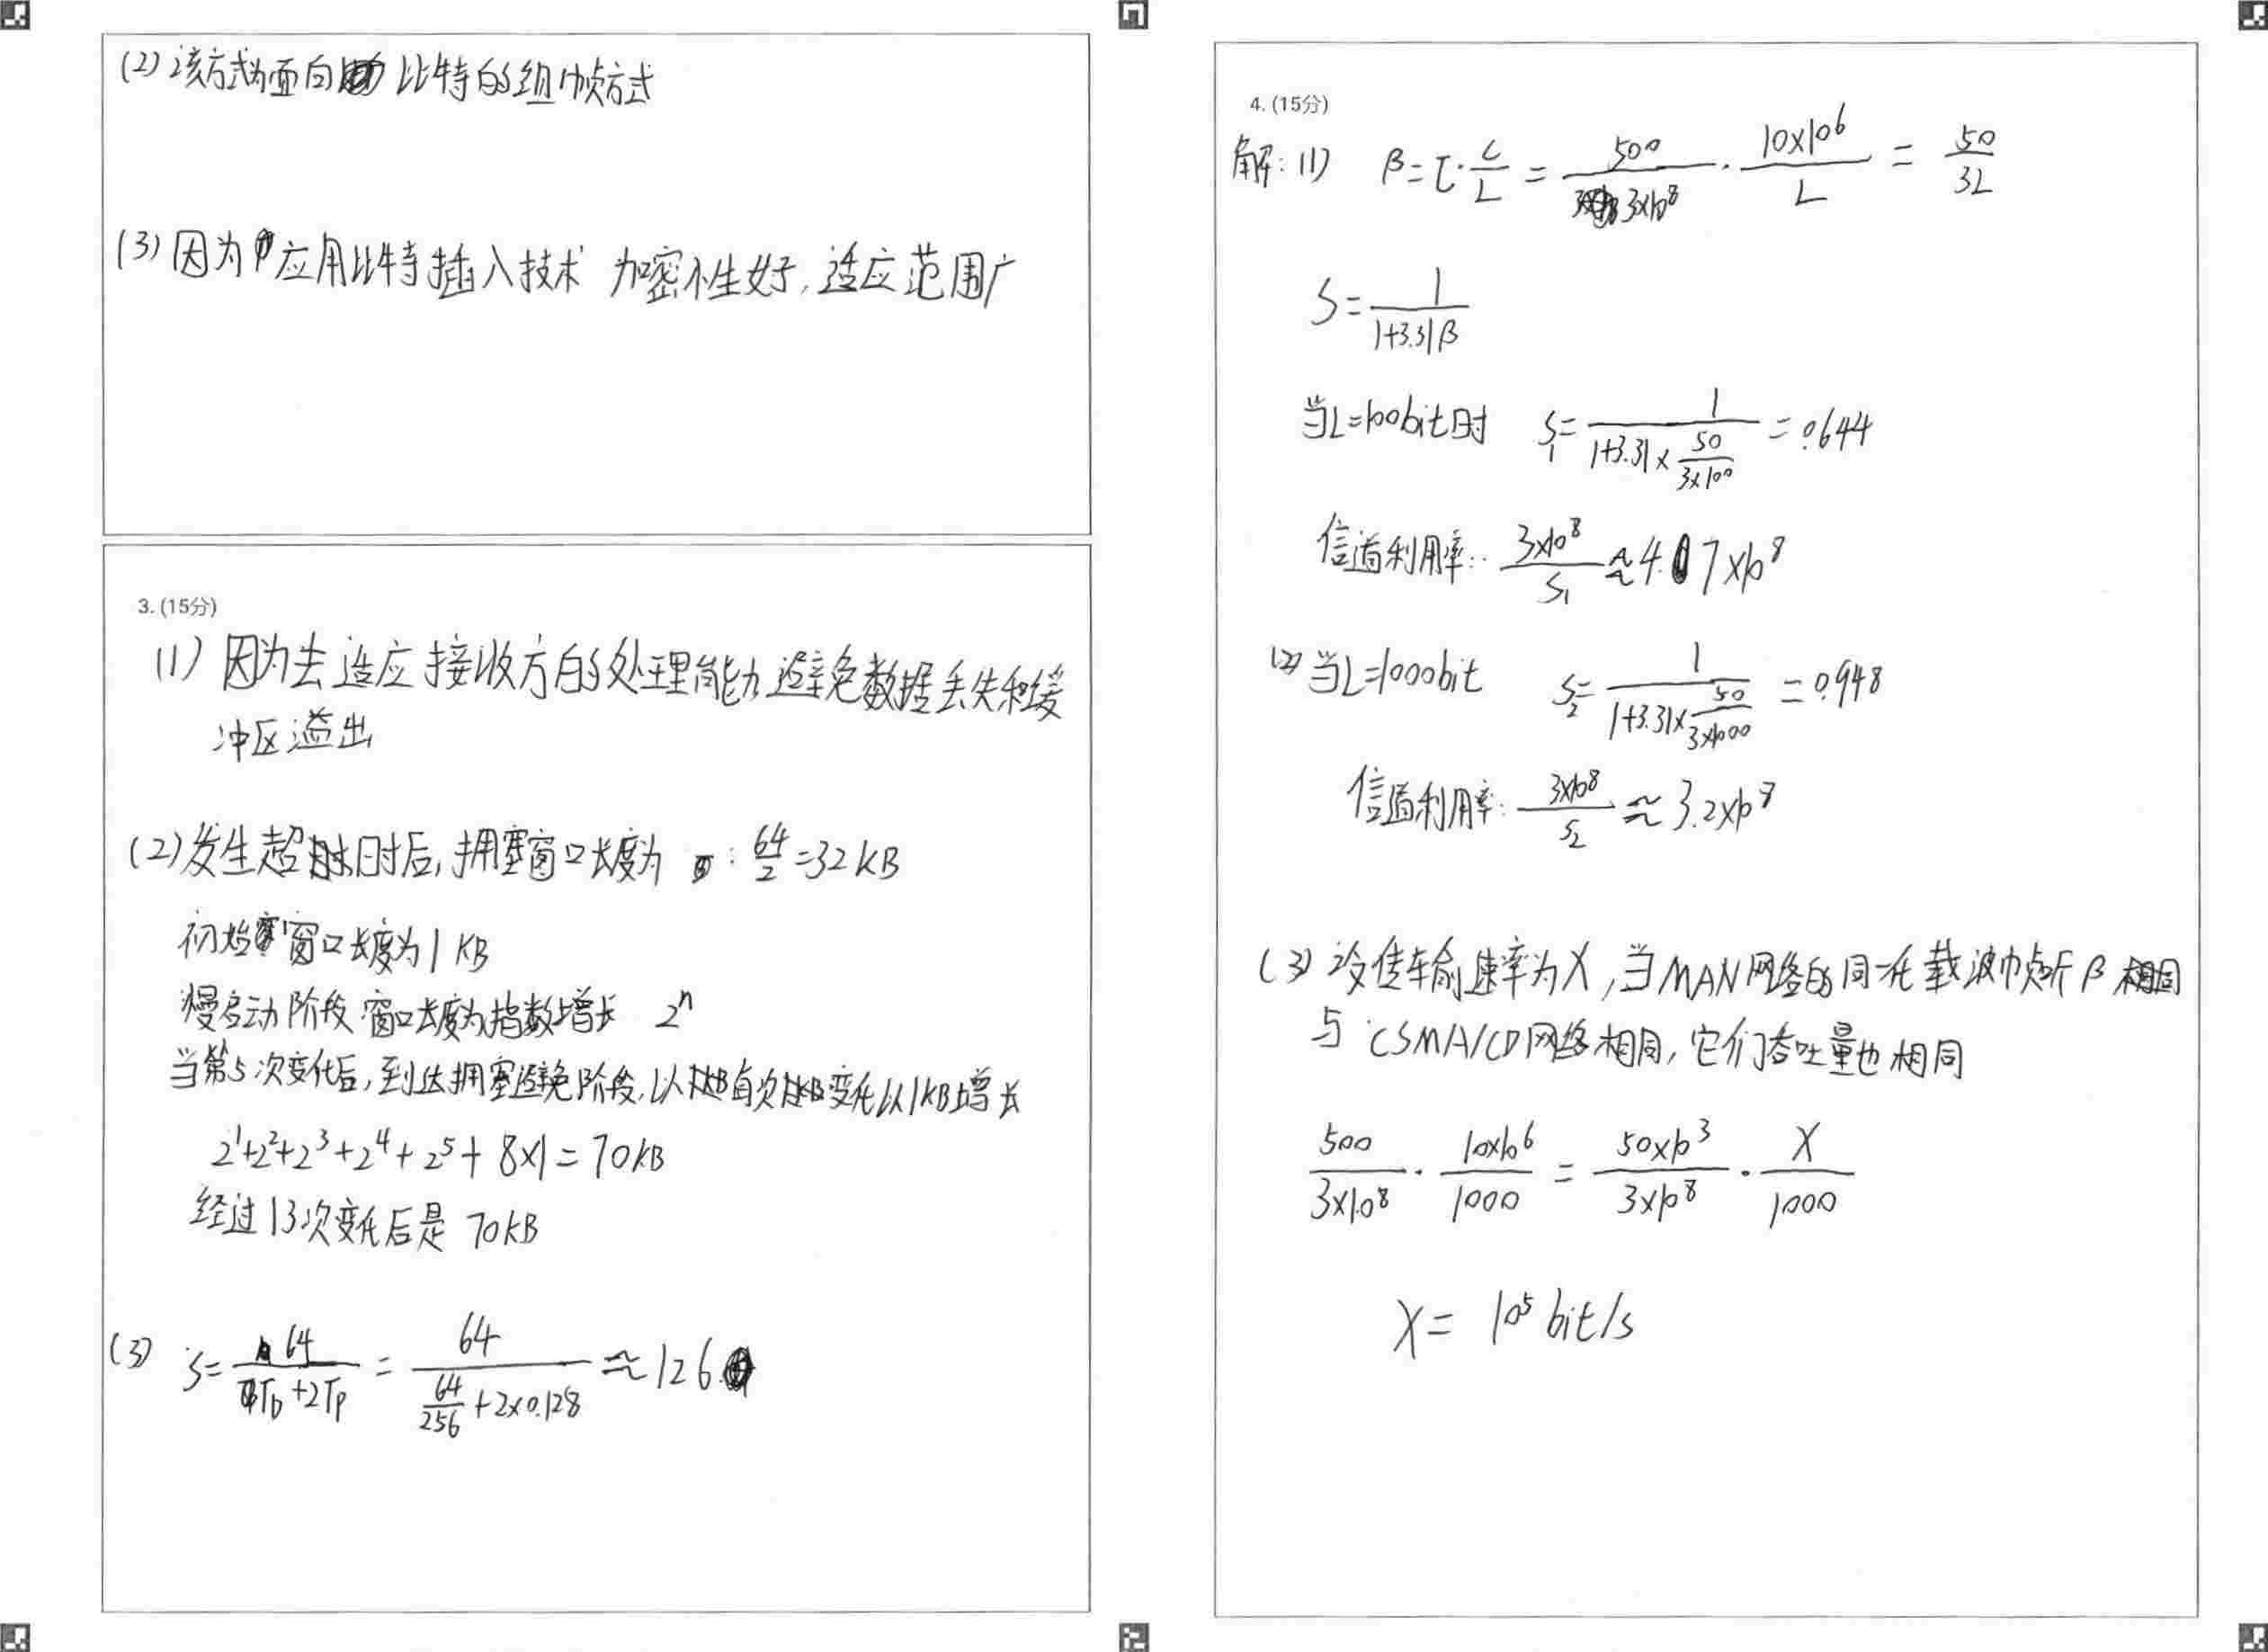 (2) 该方式为面向比特的组帧方式
(3) 因为应用比特插入技术 加密性好,适应范围广
3. (15分)
(1) 因为去适应接收方的处理能力避免数据丢失和缓
冲区溢出
(2) 发生超时后,拥塞窗口长度为 : 64/2 = 32KB
初始窗口长度为1 KB
慢启动阶段 窗口长度为指数增长 2^n
当第5次变化后,到达拥塞避免阶段,以每次变化以1KB增长
2^1+2^2+2^3+2^4+2^5+8×1=70KB
经过13次变化后是 70KB
(3) S = 64/(T_D+2T_P) = 64/(64/256+2×0.128) ≈ 126
4. (15分)
解: (1) β = τ·C/L = 500/(3×10^8) · (10×10^6)/L = 50/(3L)
S = 1/(1+3.31β)
当L=100bit时 S_1 = 1/(1+3.31×50/(3×100)) = 0.644
信道利用率: (3×10^8)/S_1 ≈ 4.7×10^8
(2) 当L=1000bit S_2 = 1/(1+3.31×50/(3×1000)) = 0.948
信道利用率: (3×10^8)/S_2 ≈ 3.2×10^8
(3) 设传输速率为X,当MAN网络的同一化载波帧听β相同
与CSMA/CD网络相同,它们吞吐量也相同
500/(3×10^8) · (10×10^6)/1000 = (50×10^3)/(3×10^8) · X/1000
X = 10^5 bit/s